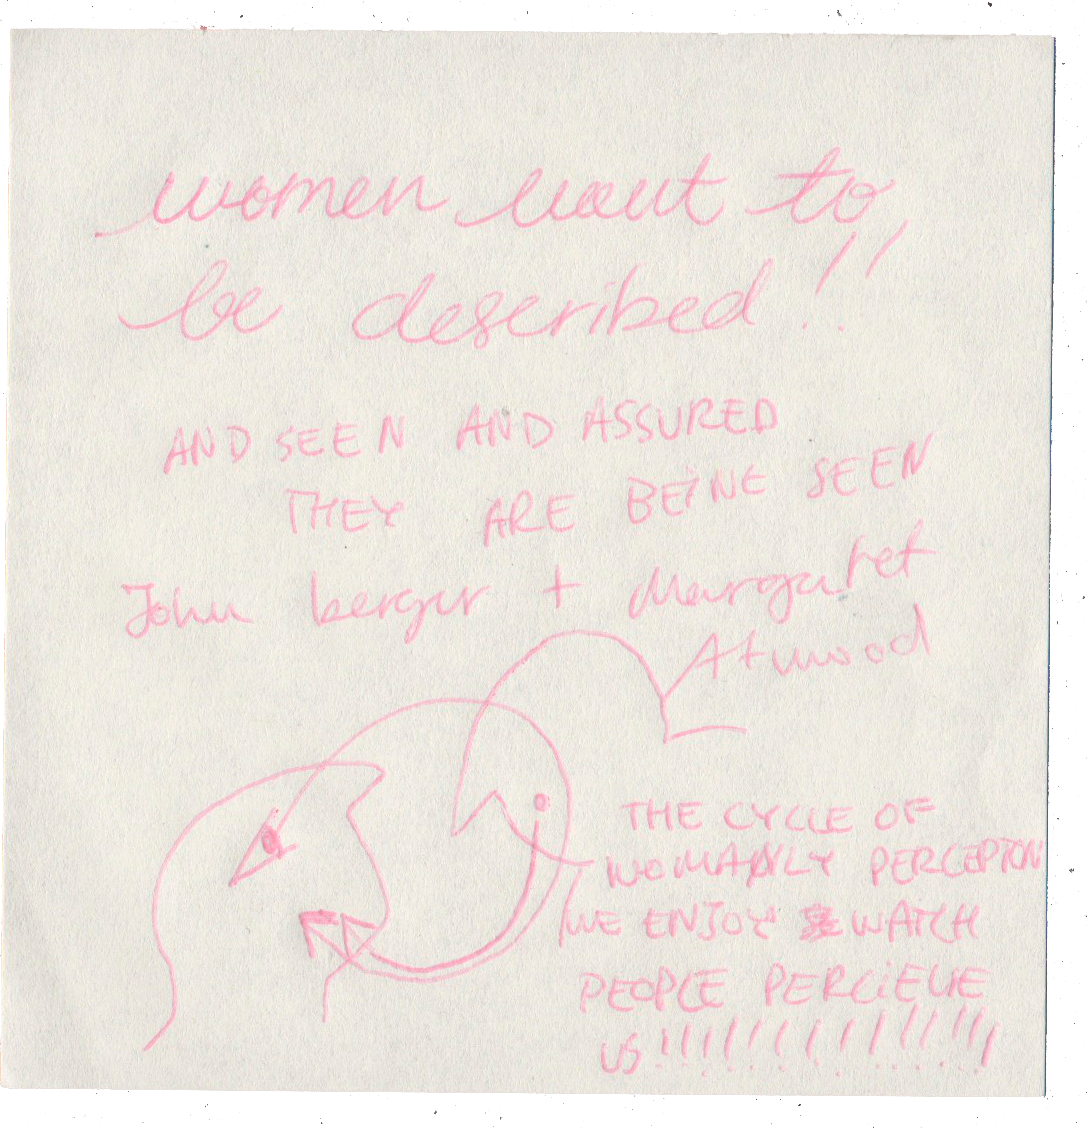 women want to
be described!!
AND SEEN AND ASSURED
THEY ARE BEING SEEN
John berger + Margaret
Atwood
THE CYCLE OF
WOMANLY PERCEPTION
WE ENJOY WATCH
PEOPLE PERCIEVE
US!!!!!!!!!!!!!!